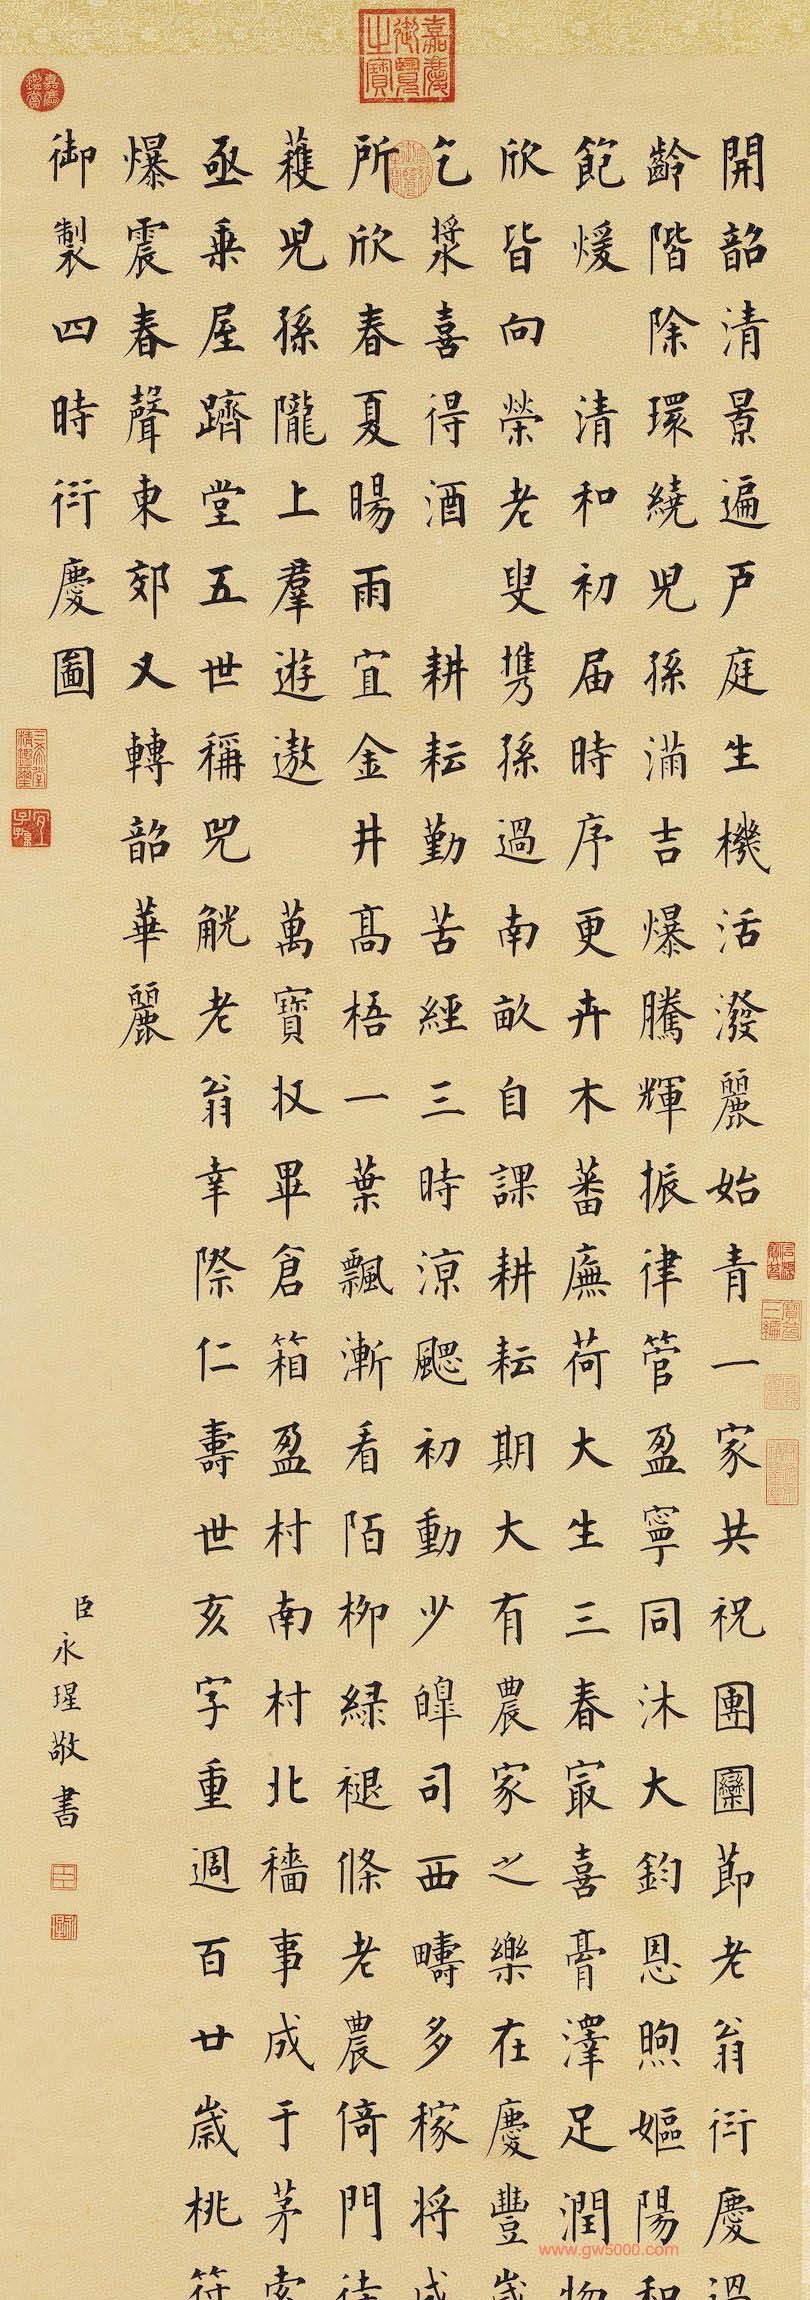 開韶清景遍戸庭生機活潑麗始青一家共祝團圞節老翁衍慶過
齡階除環繞兒孫滿吉爆騰輝振律管盈寧同沐大鈞恩煦嫗陽和
飽煖 清和初届時序更卉木蕃廡荷大生三春冣喜膏澤足潤物
欣皆向榮老叟携孫過南畝自課耕耘期大有農家之樂在慶豐歲
乞漿喜得酒 耕耘勤苦經三時涼颸初動少皞司西疇多稼將成
所欣春夏暘雨宜金井高梧一葉飄漸看陌栁緑褪條老農倚門待
穫兒孫隴上羣遊遨 萬寶収畢倉箱盈村南村北穡事成于茅索
亟乗屋躋堂五世稱兕觥老翁幸際仁壽世亥字重週百廿歳桃符
爆震春聲東郊又轉韶華麗
御製四時衍慶圖
臣永瑆敬書
嘉慶御覽之寶
嘉慶鑑賞
三希堂精鑑璽
宜子孫
www.gw5000.com